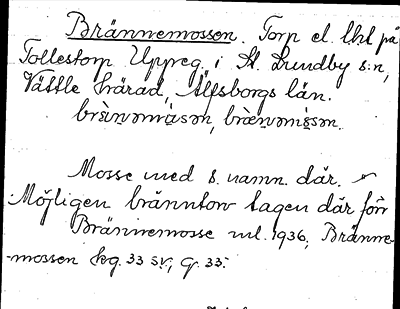 Brännemossen. Torp el. lht på
Tollestorp Uppreg. i St. Lundby s:n,
Vättle härad, Älfsborgs län.
Mosse med s. namn. där.
Möjligen bränntorv tagen där förr
Brännemosse ml. 1936, Bränne-
-mossen hg. 33 SV, G. 33.